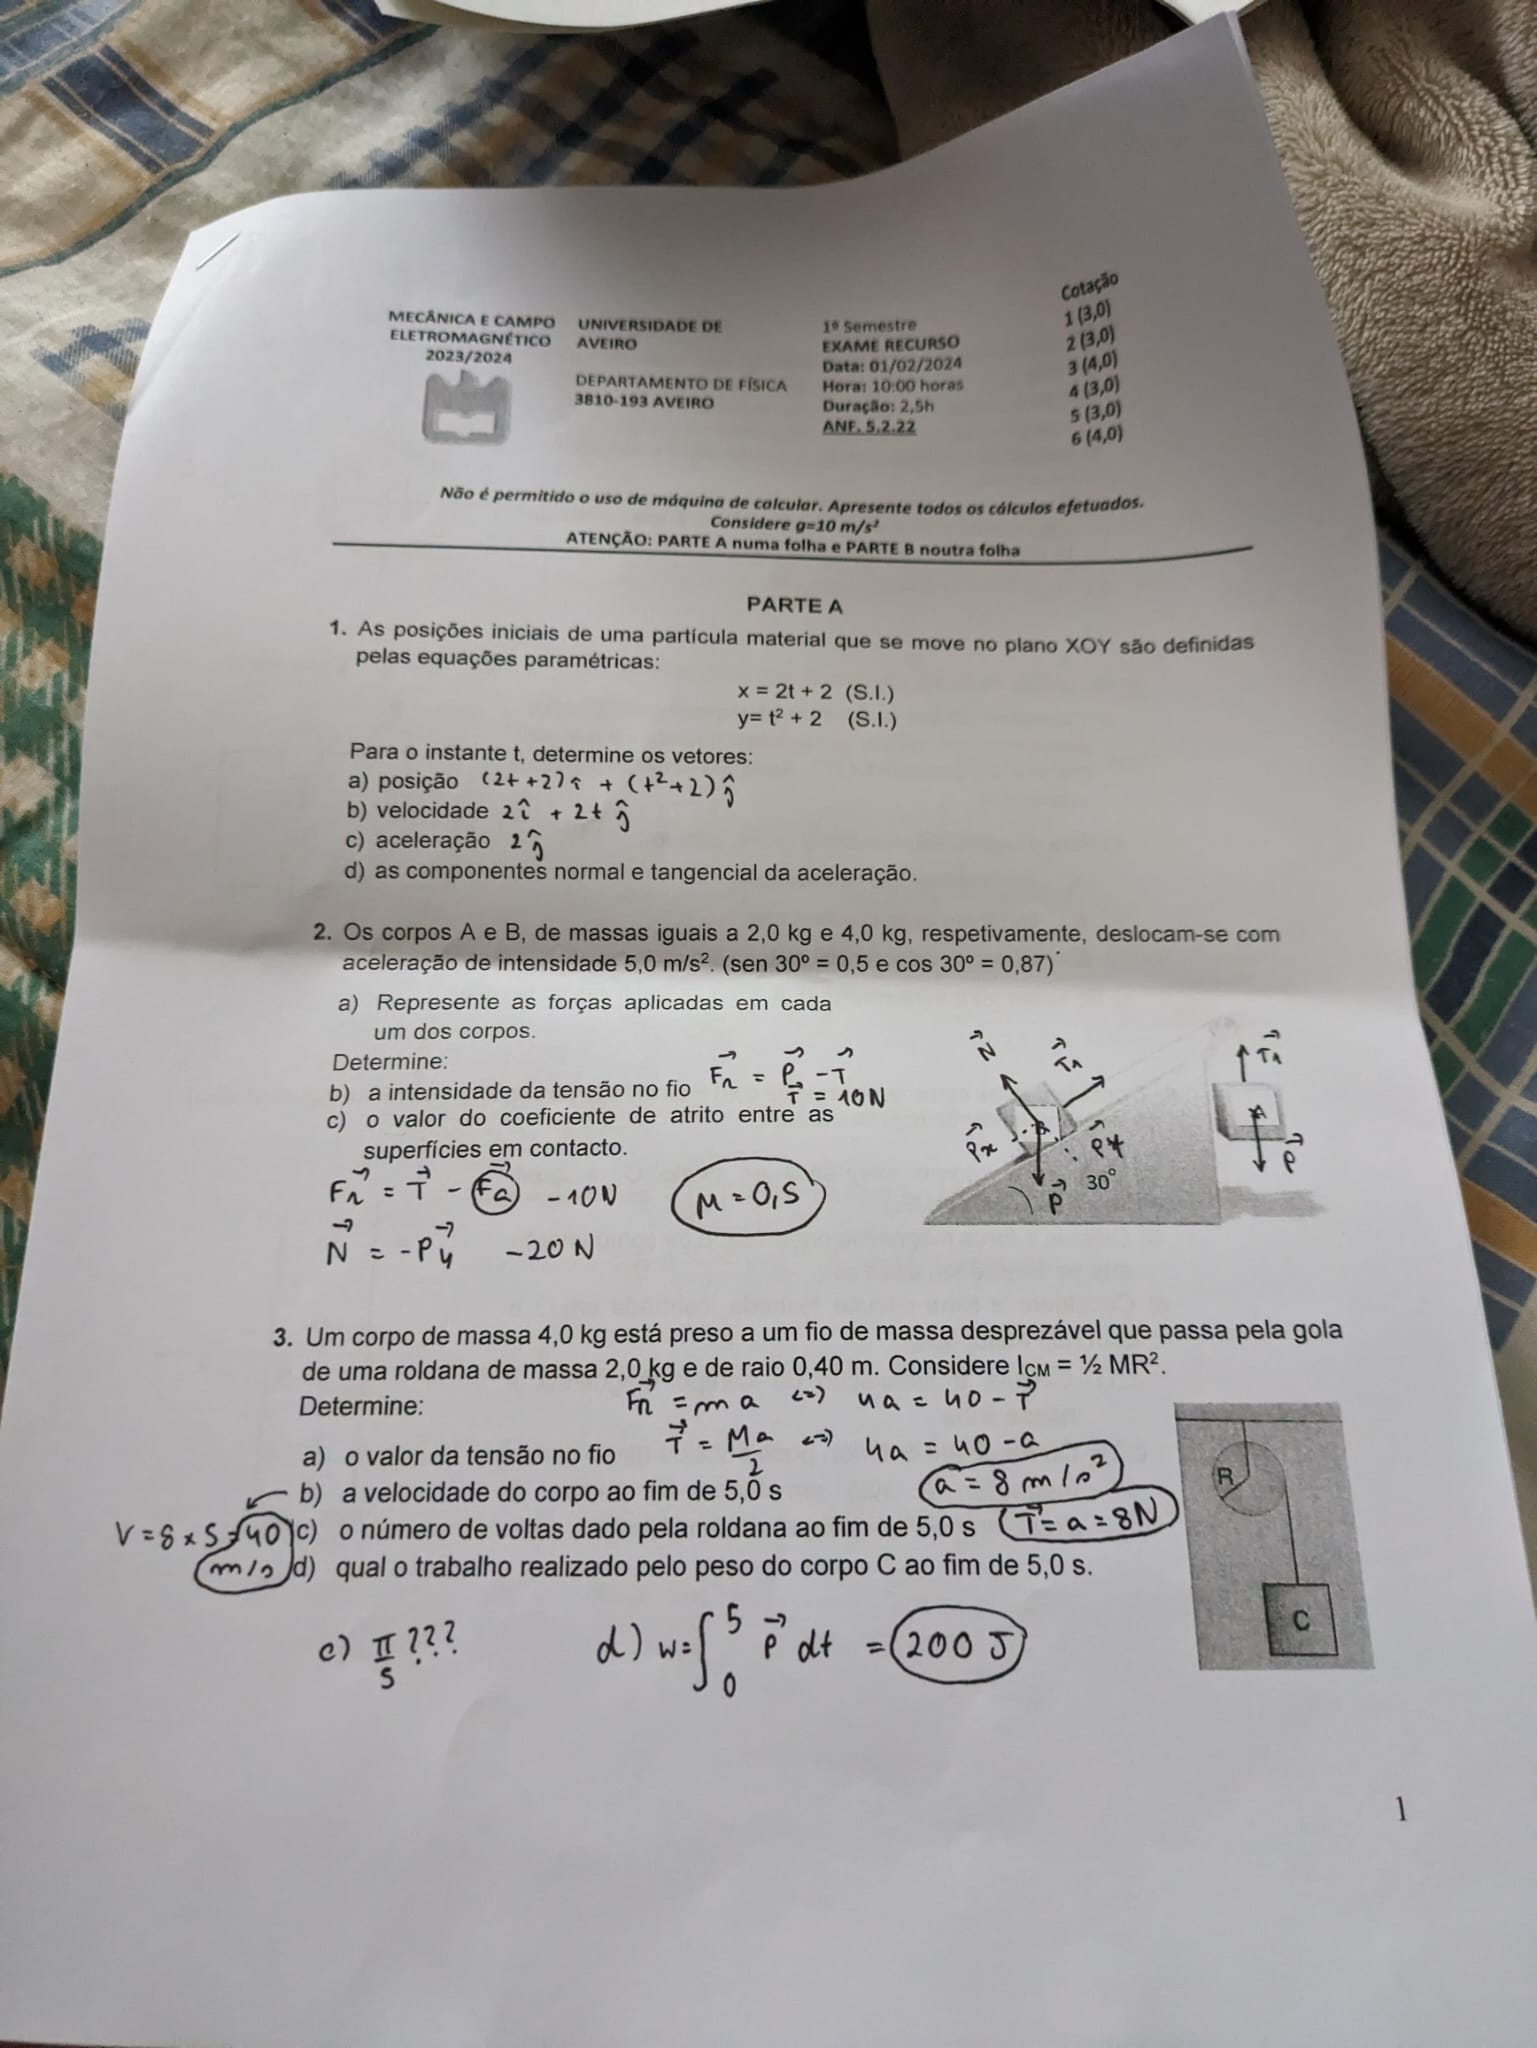 MECÂNICA E CAMPO
ELETROMAGNÉTICO
2023/2024
UNIVERSIDADE DE
AVEIRO
DEPARTAMENTO DE FÍSICA
3810-193 AVEIRO
1º Semestre
EXAME RECURSO
Data: 01/02/2024
Hora: 10:00 horas
Duração: 2,5h
ANF. 5.2.22
Cotação
1 (3,0)
2 (3,0)
3 (4,0)
4 (3,0)
5 (3,0)
6 (4,0)
Não é permitido o uso de máquina de calcular. Apresente todos os cálculos efetuados.
Considere g=10 m/s²
ATENÇÃO: PARTE A numa folha e PARTE B noutra folha
PARTE A
1. As posições iniciais de uma partícula material que se move no plano XOY são definidas
pelas equações paramétricas:
x = 2t + 2 (S.I.)
y= t² + 2 (S.I.)
Para o instante t, determine os vetores:
a) posição (2t +2) î + (t²+2) ĵ
b) velocidade 2î + 2t ĵ
c) aceleração 2ĵ
d) as componentes normal e tangencial da aceleração.
2. Os corpos A e B, de massas iguais a 2,0 kg e 4,0 kg, respetivamente, deslocam-se com
aceleração de intensidade 5,0 m/s². (sen 30º = 0,5 e cos 30º = 0,87)
a) Represente as forças aplicadas em cada
um dos corpos.
Determine:
b) a intensidade da tensão no fio Fr = P - T
T = 10N
c) o valor do coeficiente de atrito entre as
superfícies em contacto.
Fr = T - Fa - 10N
μ = 0,5
N = -Py -20N
N
T1
Px
Py
P
30°
T1
A
P
3. Um corpo de massa 4,0 kg está preso a um fio de massa desprezável que passa pela gola
de uma roldana de massa 2,0 kg e de raio 0,40 m. Considere ICM = ½ MR².
Determine: Fr = ma <=> 4a = 40 - T
a) o valor da tensão no fio T = Ma/2 <=> 4a = 40 - a
b) a velocidade do corpo ao fim de 5,0 s a = 8 m/s²
V = 8 x 5 = 40 c) o número de voltas dado pela roldana ao fim de 5,0 s T = a = 8N
m/s d) qual o trabalho realizado pelo peso do corpo C ao fim de 5,0 s.
R
C
c) π/5 ???
d) w = ∫₀⁵ P dt = 200 J
1